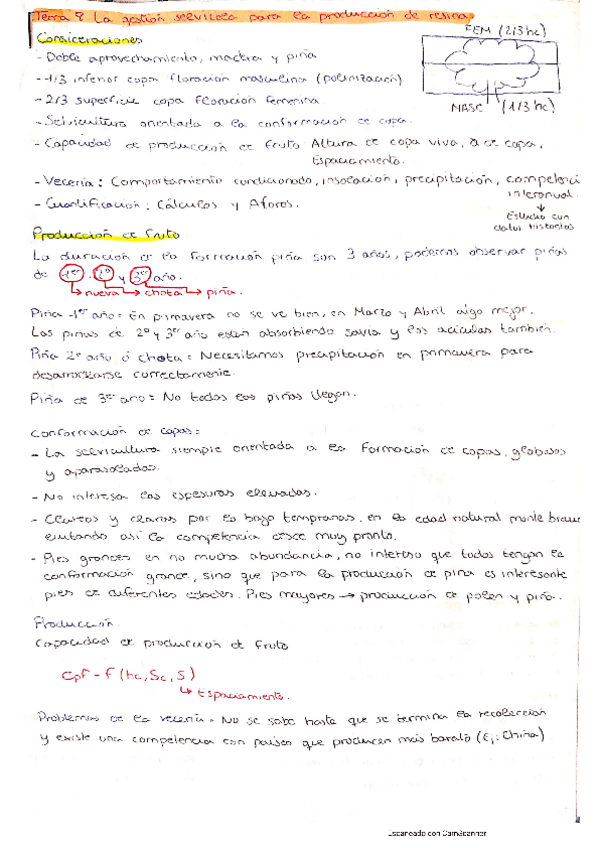 Tema 8 La gestión selvícola para la producción de resina
FEM (2/3 hc)
Consideraciones
- Doble aprovechamiento, madera y piña
- 1/3 inferior copa floración masculina (polinización)
- 2/3 superficie copa floración femenina.
MASC (1/3 hc)
- Selvicultura orientada a la conformación de copa.
- Capacidad de producción de fruto Altura de copa viva, de copa,
Espaciamiento.
- Vecería: Comportamiento condicionado, insolación, precipitación, competenci
interanual.
- Cuantificación: Cálculos y Aforos.
Estudio con
datos históricos
Producción de fruto
La duración de la formación piña son 3 años, podemos observar piñas
de 1er, 2º y 3er año.
nueva chota piña.
Piña 1er año = En primavera no se ve bien, en Marzo y Abril algo mejor.
Las piñas de 2º y 3er año están absorbiendo savia y las acículas también.
Piña 2º año ó chota = Necesitamos precipitación en primavera para
desarrollarse correctamente.
Piña de 3er año = No todas las piñas llegan.
Conformación de copas =
- La selvicultura siempre orientada a la formación de copas, globosas
y aparasoladas.
- No interesa las espesuras elevadas.
- Clareos y claras por lo bajo tempranas, en la edad natural monte bravo
evitando así la competencia desde muy pronto.
- Pies grandes en no mucha abundancia, no interesa que todos tengan la
conformación grande, sino que para la producción de piña es interesante
pies de diferentes edades. Pies mayores → producción de polen y piña.
Producción.
Capacidad de producción de fruto
CpF = f (hc, Sc, S)
↳ Espaciamiento.
Problemas de la vecería = No se sabe hasta que se termina la recolección
y existe una competencia con países que producen más barato (Ej: China)
Escaneado con CamScanner